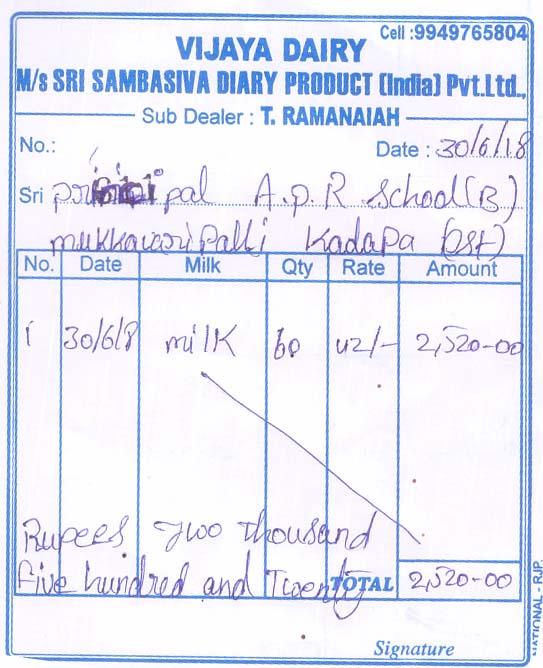 Cell :9949765804
VIJAYA DAIRY
M/s SRI SAMBASIVA DIARY PRODUCT (India) Pvt.Ltd.,
Sub Dealer : T. RAMANAIAH
No.: Date : 30/6/18
Sri principal A.p.R School(B)
mukkavaripalli Kadapa (Dst)
No. Date Milk Qty Rate Amount
1 30/6/8 milk 60 42/- 2,520-00
Rupees Two thousand
Five hundred and Twenty TOTAL 2,520-00
Signature
NATIONAL - RJP.